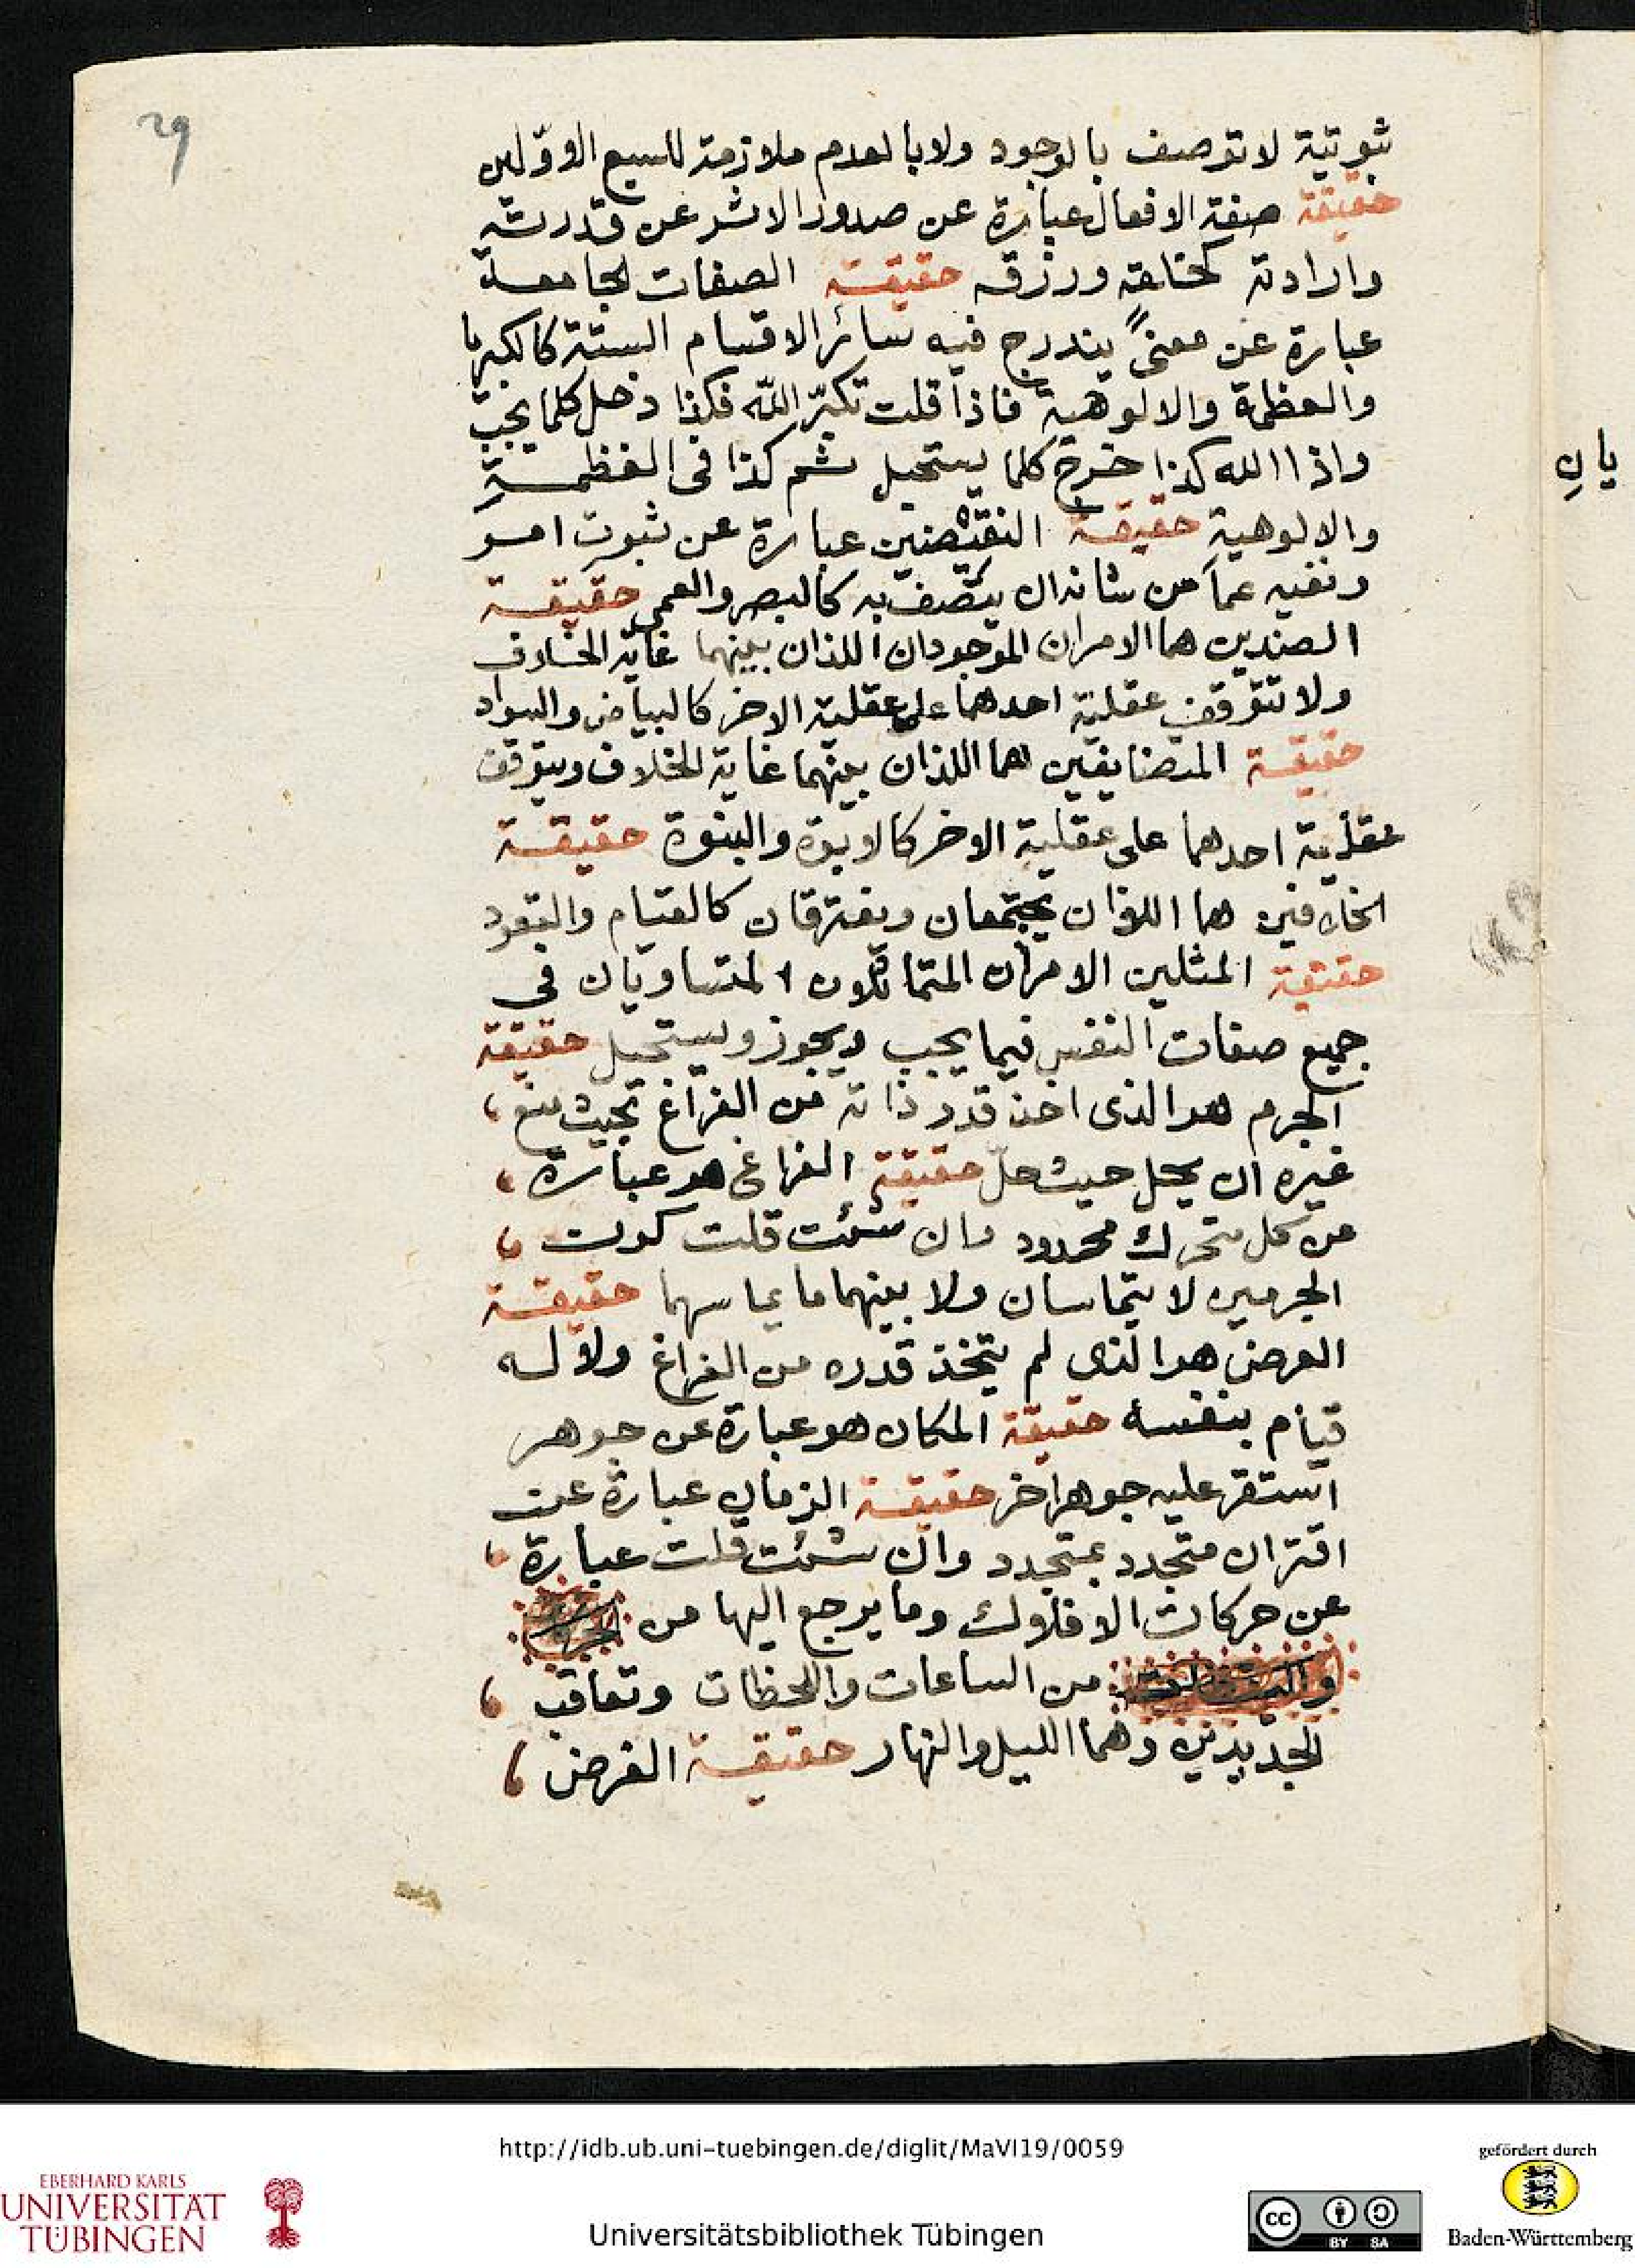 29
ثبوتية لا توصف بالوجود ولا بالعدم ملازمة للسبع الاولين
حقيقة صفة الافعال عبارة عن صدور الاثر عن قدرته
وارادته كخلقه ورزقه حقيقة الصفات الجامعة
عبارة عن معنىً يندرج فيه سائر الاقسام الستة كالكبريا
والعظمة والالوهية فاذا قلت تكبّر الله فكذا دخل كلما يجب
واذا الله كذا خرج كلما يستحيل ثم كذا في العظمة
والالوهية حقيقة النقيضين عبارة عن ثبوت امر
ونفيه عما من شانه ان يتّصف به كالبصر والعمى حقيقة
الضدين هما الامران الموجودان اللذان بينهما غاية الخلاف
ولا تتوقف عقلية احدهما على عقلية الاخر كالبياض والسواد
حقيقة المتضايفين هما اللذان بينهما غاية الخلاف ويتوقف
عقلية احدهما على عقلية الاخر كالابوة والبنوة حقيقة
الخلافين هما اللذان يجتمعان ويفترقان كالقيام والقعود
حقيقة المثلين الامران المتماثلان المتساويان في
جميع صفات النفس فيما يجب ويجوز ويستحيل حقيقة
الجرم هو الذى اخذ قدر ذاته من الفراغ بحيث منع
غيره ان يحل حيث حلّ حقيقة الفراغ هو عبارة
عن كل متحرك محدود وان شئت قلت كون
الجرمين لا يتماسان ولا بينهما ما يماسهما حقيقة
العرض هو الذى لم يتخذ قدره من الفراغ ولا له
قيام بنفسه حقيقة المكان هو عبارة عن جوهر
استقر عليه جوهر اخر حقيقة الزمان عبارة عن
اقتران متجدد بمتجدد وان شئت قلت عبارة
عن حركات الافلاك وما يرجع اليها من
من الساعات واللحظات وتعاقب
الجديدين وهما الليل والنهار حقيقة الغرض
يان
http://idb.ub.uni-tuebingen.de/diglit/MaVI19/0059
EBERHARD KARLS
UNIVERSITÄT
TÜBINGEN
Universitätsbibliothek Tübingen
cc BY SA
gefördert durch
Baden-Württemberg